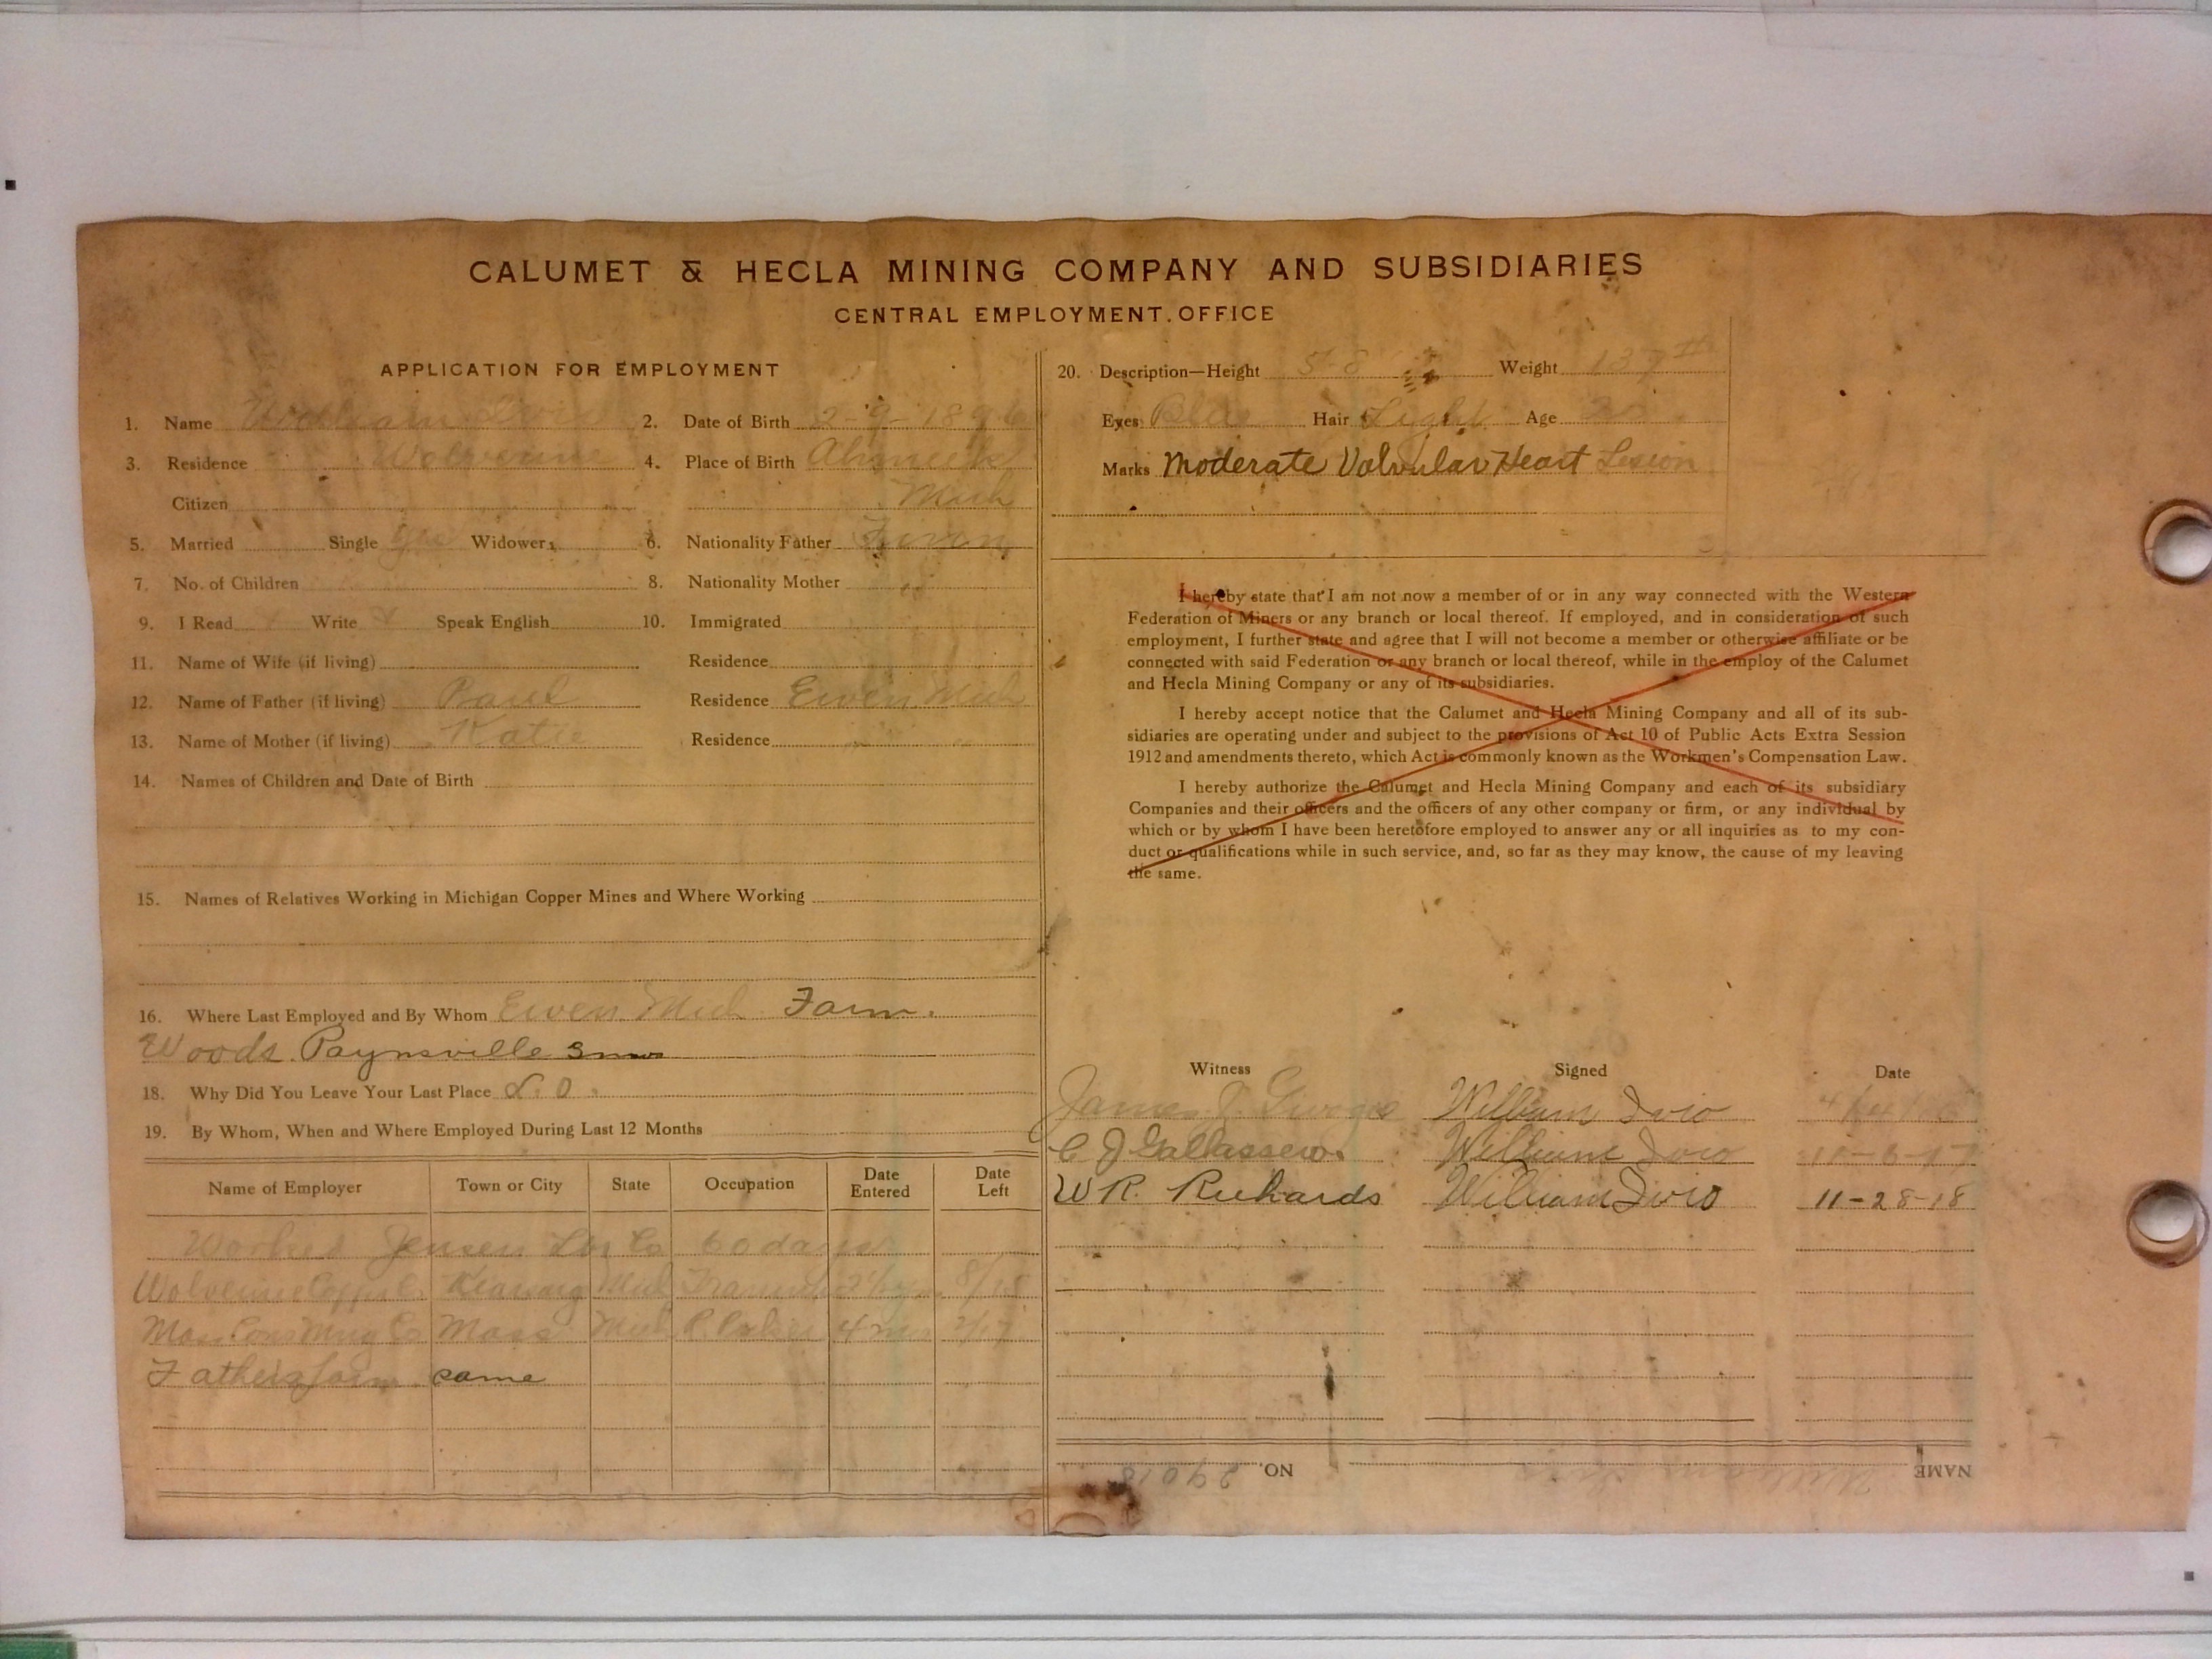 CALUMET & HECLA MINING COMPANY AND SUBSIDIARIES
CENTRAL EMPLOYMENT OFFICE
APPLICATION FOR EMPLOYMENT
1. Name William
2. Date of Birth 2-9-1896
3. Residence Wolverine
4. Place of Birth Ahmeek
Mich
Citizen
5. Married Single Yes Widower
6. Nationality Father
7. No. of Children
8. Nationality Mother
9. I Read Write Speak English
10. Immigrated
11. Name of Wife (if living) Residence
12. Name of Father (if living) Paul Residence Ewen Mich
13. Name of Mother (if living) Katie Residence
14. Names of Children and Date of Birth
15. Names of Relatives Working in Michigan Copper Mines and Where Working
16. Where Last Employed and By Whom Ewen Mich Farm.
Woods. Paynsville 3 mos
18. Why Did You Leave Your Last Place L. O.
19. By Whom, When and Where Employed During Last 12 Months
Name of Employer Town or City State Occupation Date Entered Date Left
Worked Jensen Co 60 days
Wolverine Copper Kearsarge Mich
Mass Cons Mng Co Mass Mich 4
Fathers farm same
20. Description—Height 5-8 Weight 137
Eyes Blue Hair Light Age
Marks Moderate Valvular Heart Lesion
I hereby state that I am not now a member of or in any way connected with the Western
Federation of Miners or any branch or local thereof. If employed, and in consideration of such
employment, I further state and agree that I will not become a member or otherwise affiliate or be
connected with said Federation or any branch or local thereof, while in the employ of the Calumet
and Hecla Mining Company or any of its subsidiaries.
I hereby accept notice that the Calumet and Hecla Mining Company and all of its sub-
sidiaries are operating under and subject to the provisions of Act 10 of Public Acts Extra Session
1912 and amendments thereto, which Act is commonly known as the Workmen's Compensation Law.
I hereby authorize the Calumet and Hecla Mining Company and each of its subsidiary
Companies and their officers and the officers of any other company or firm, or any individual by
which or by whom I have been heretofore employed to answer any or all inquiries as to my con-
duct or qualifications while in such service, and, so far as they may know, the cause of my leaving
the same.
Witness Signed Date
James William Ivio
C J William Ivio 11-6-17
W R. Richards William Ivio 11-28-18
NAME William NO. 29018